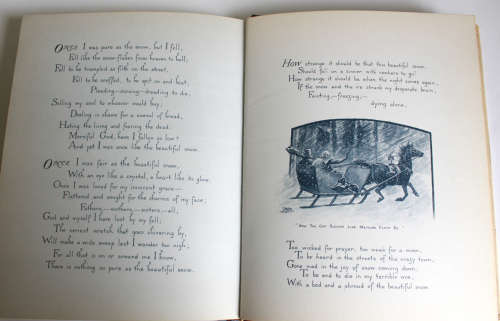 Once I was pure as the snow, but I fell,
Fell like the snow-flakes from heaven to hell;
Fell to be trampled as filth on the street,
Fell to be scoffed, to be spit on and beat,
Pleading—cursing—dreading to die,
Selling my soul to whoever would buy;
Dealing in shame for a morsel of bread,
Hating the living and fearing the dead.
Merciful God, have I fallen so low?
And yet I was once like the beautiful snow.
Once I was fair as the beautiful snow,
With an eye like a crystal, a heart like its glow,
Once I was loved for my innocent grace—
Flattered and sought for the charms of my face;
Father,—mother,—sisters,—all,
God and myself I have lost by my fall;
The veriest wretch that goes shivering by,
Will make a wide sweep lest I wander too nigh;
For all that is on or around me I know,
There is nothing so pure as the beautiful snow.
How strange it should be that this beautiful snow,
Should fall on a sinner with nowhere to go!
How strange it should be when the night comes again,
If the snow and the ice struck my desperate brain,
Fainting,—freezing,—
dying alone,
Too wicked for prayer, too weak for a moan,
To be heard in the streets of the crazy town,
Gone mad in the joy of snow coming down;
To be and to die in my terrible woe,
With a bed and a shroud of the beautiful snow.